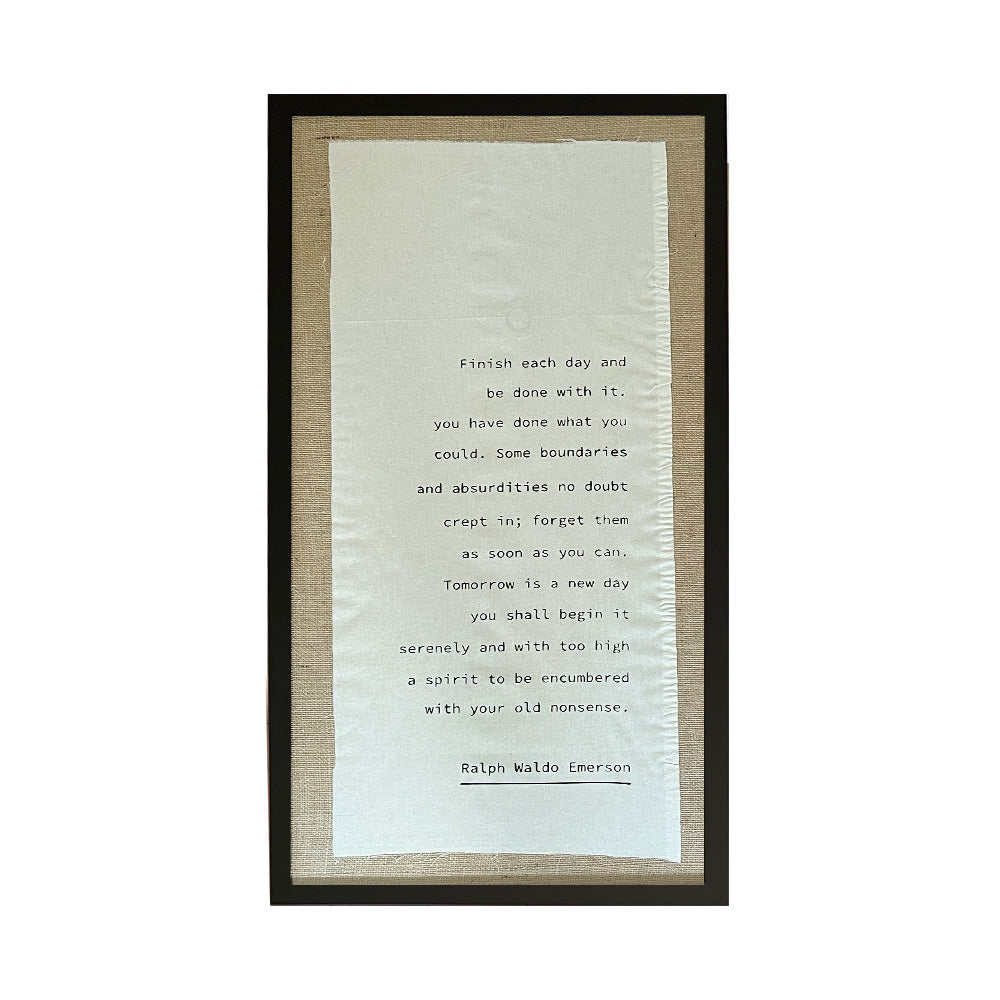 Finish each day and
be done with it.
you have done what you
could. Some boundaries
and absurdities no doubt
crept in; forget them
as soon as you can.
Tomorrow is a new day
you shall begin it
serenely and with too high
a spirit to be encumbered
with your old nonsense.
Ralph Waldo Emerson